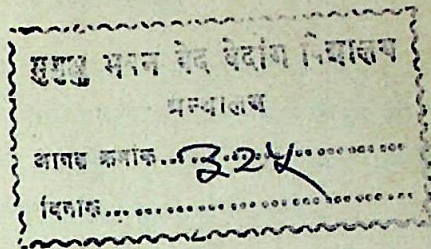 मुमुक्षु भवन वेद वेदांग विद्यालय
ग्रन्थालय
आगत क्रमांक....३२५....
दिनांक....